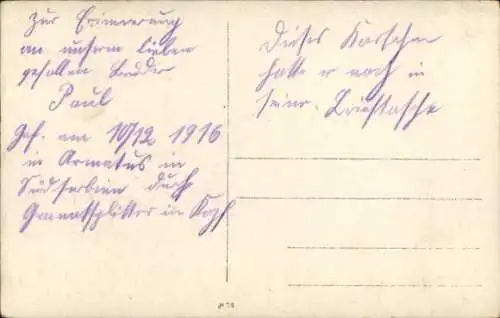 Zur Erinnerung
an unsern lieben
gefallen Bruder
Paul
Gef. am 10/12 1916
in Armatus in
Südserbien durch
Granatsplitter in Kopf
Dieses Kärtchen
hatte er noch in
seiner Brieftasche